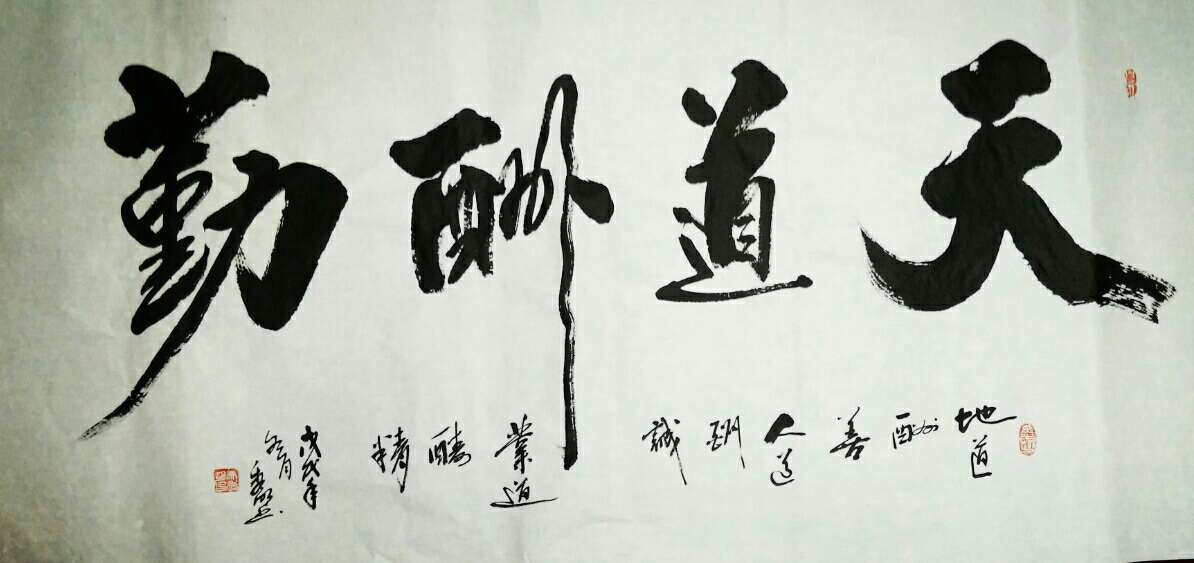 天道酬勤
地道酬善
人道酬誠
業道酬精
戊戌年
冬月